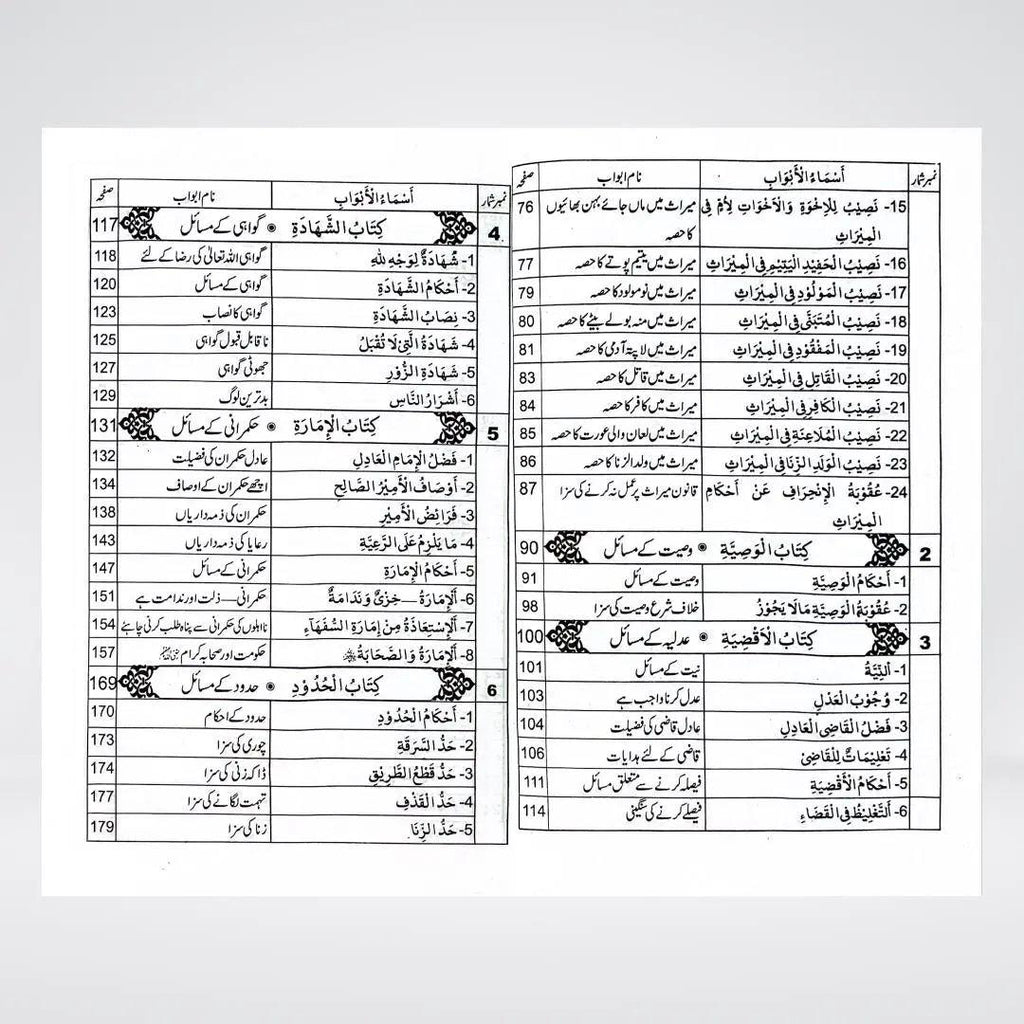 نمبر شمار أَسْمَاءُ الْأَبْوَابِ نام ابواب صفحہ
15- نَصِيْبُ لِلْاِخْوَةِ وَالْاَخَوَاتِ لِاُمٍّ فِي الْمِيْرَاثِ میراث میں ماں جائے بہن بھائیوں کا حصہ 76
16- نَصِيْبُ الْحَفِيْدِ الْيَتِيْمِ فِي الْمِيْرَاثِ میراث میں یتیم پوتے کا حصہ 77
17- نَصِيْبُ الْمَوْلُوْدِ فِي الْمِيْرَاثِ میراث میں نومولود کا حصہ 79
18- نَصِيْبُ الْمُتَبَنّٰى فِي الْمِيْرَاثِ میراث میں منہ بولے بیٹے کا حصہ 80
19- نَصِيْبُ الْمَفْقُوْدِ فِي الْمِيْرَاثِ میراث میں لاپتہ آدمی کا حصہ 81
20- نَصِيْبُ الْقَاتِلِ فِي الْمِيْرَاثِ میراث میں قاتل کا حصہ 83
21- نَصِيْبُ الْكَافِرِ فِي الْمِيْرَاثِ میراث میں کافر کا حصہ 84
22- نَصِيْبُ الْمُلَاعِنَةِ فِي الْمِيْرَاثِ میراث میں لعان والی عورت کا حصہ 85
23- نَصِيْبُ الْوَلَدِ الزِّنَا فِي الْمِيْرَاثِ میراث میں ولد الزنا کا حصہ 86
24- عُقُوْبَةُ الْاِنْحِرَافِ عَنْ أَحْكَامِ الْمِيْرَاثِ قانون میراث پر عمل نہ کرنے کی سزا 87
2 كِتَابُ الْوَصِيَّةِ ● وصیت کے مسائل 90
1- أَحْكَامُ الْوَصِيَّةِ وصیت کے مسائل 91
2- عُقُوْبَةُ الْوَصِيَّةِ مَا لَا يَجُوْزُ خلاف شرع وصیت کی سزا 98
3 كِتَابُ الْأَقْضِيَةِ ● عدلیہ کے مسائل 100
1- اَلنِّيَّةُ نیت کے مسائل 101
2- وُجُوْبُ الْعَدْلِ عدل کرنا واجب ہے 103
3- فَضْلُ الْقَاضِى الْعَادِلِ عادل قاضی کی فضیلت 104
4- تَعْلِيْمَاتٌ لِلْقَاضِىْ قاضی کے لئے ہدایات 106
5- أَحْكَامُ الْأَقْضِيَةِ فیصلہ کرنے سے متعلق مسائل 111
6- اَلتَّغْلِيْظُ فِي الْقَضَاءِ فیصلے کرنے کی سنگینی 114
نمبر شمار أَسْمَاءُ الْأَبْوَابِ نام ابواب صفحہ
4 كِتَابُ الشَّهَادَةِ ● گواہی کے مسائل 117
1- شَهَادَةٌ لِوَجْهِ لِلّٰهِ گواہی اللہ تعالیٰ کی رضا کے لئے 118
2- أَحْكَامُ الشَّهَادَةِ گواہی کے مسائل 120
3- نِصَابُ الشَّهَادَةِ گواہی کا نصاب 123
4- شَهَادَةُ الَّتِىْ لَا تُقْبَلُ نا قابل قبول گواہی 125
5- شَهَادَةِ الزُّوْرِ جھوٹی گواہی 127
6- أَشْرَارُ النَّاسِ بدترین لوگ 129
5 كِتَابُ الْإِمَارَةِ ● حکمرانی کے مسائل 131
1- فَضْلُ الْاِمَامِ الْعَادِلِ عادل حکمران کی فضیلت 132
2- أَوْصَافُ الْأَمِيْرُ الصَّالِحِ اچھے حکمران کے اوصاف 134
3- فَرَائِضُ الْأَمِيْرِ حکمران کی ذمہ داریاں 138
4- مَا يَلْزِمُ عَلَى الرَّعِيَّةِ رعایا کی ذمہ داریاں 143
5- أَحْكَامُ الْإِمَارَةِ حکمرانی کے مسائل 147
6- اَلْإِمَارَةُ — خِزْىٌ وَنَدَامَةٌ حکمرانی — ذلت اور ندامت ہے 151
7- اَلْإِسْتِعَاذَةُ مِنْ إِمَارَةِ السُّفَهَآءِ نااہلوں کی حکمرانی سے پناہ طلب کرنی چاہئے 154
8- اَلْإِمَارَةُ وَالصَّحَابَةُ حکومت اور صحابہ کرام 157
6 كِتَابُ الْحُدُوْدِ ● حدود کے مسائل 169
1- أَحْكَامُ الْحُدُوْدِ حدود کے احکام 170
2- حَدُّ السَّرَقَةِ چوری کی سزا 173
3- حَدُّ قَطْعِ الطَّرِيْقِ ڈاکہ زنی کی سزا 174
4- حَدُّ الْقَذْفِ تہمت لگانے کی سزا 177
5- حَدُّ الزِّنَا زنا کی سزا 179